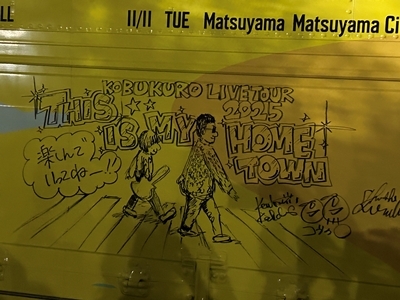 LLE
11/11 TUE Matsuyama Matsuyama Ci
KOBUKURO LIVE TOUR
2025
THIS
IS MY HOME
TOWN
楽しんで
いってねー!!